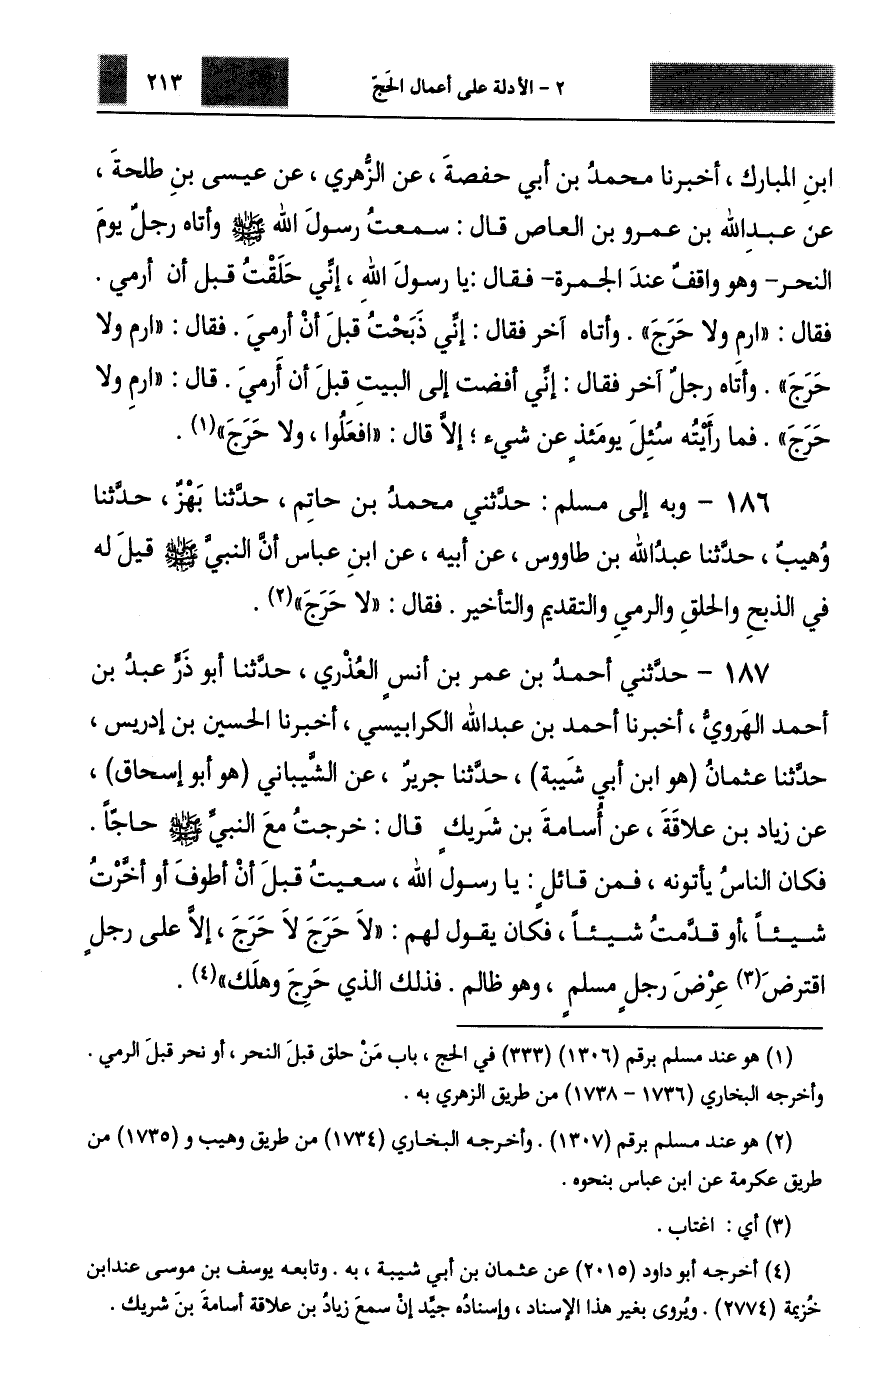 ٢ - الأدلة على أعمال الحَجّ ٢١٣
ابنِ المبارك ، أخبرنا محمدُ بن أبي حفصةَ ، عن الزُّهري ، عن عيسى بنِ طلحةَ ،
عن عبدِالله بن عمرو بن العاص قال : سمعتُ رسولَ الله ﷺ وأتاه رجلٌ يومَ
النحر- وهو واقفٌ عندَ الجمرة- فقال :يا رسولَ اللهِ ، إنِّي حَلَقْتُ قبل أن أرمي .
فقال : «ارمِ ولا حَرَجَ» . وأتاه آخر فقال : إنِّي ذَبَحْتُ قبلَ أنْ أرميَ . فقال : «ارمِ ولا
حَرَجَ» . وأتاه رجلٌ آخر فقال : إنِّي أفضت إلى البيتِ قبلَ أن أَرميَ . قال : «ارمِ ولا
حَرَجَ» . فما رأَيْتُه سُئِلَ يومَئذٍ عن شيء ؛ إلاَّ قال : «افعَلُوا ، ولا حَرَجَ»(١) .
١٨٦ - وبه إلى مسلم : حدَّثني محمدُ بن حاتِم ، حدَّثنا بَهْزٌ ، حدَّثنا
وُهيبٌ ، حدَّثنا عبدُالله بن طاووس ، عن أبيه ، عن ابنِ عباس أنَّ النبيَّ ﷺ قيلَ له
في الذبحِ والحلقِ والرميِ والتقديم والتأخير . فقال : «لا حَرَجَ»(٢) .
١٨٧ - حدَّثني أحمدُ بن عمر بن أنسٍ العُذْري ، حدَّثنا أبو ذَرٍّ عبدُ بن
أحمد الهَرويُّ ، أخبرنا أحمد بن عبدالله الكرابيسي ، أخبرنا الحسين بن إدريس ،
حدَّثنا عثمانُ (هو ابن أبي شَيبة) ، حدَّثنا جريرٌ ، عن الشَّيباني (هو أبو إسحاق) ،
عن زياد بن علاقَةَ ، عن أُسامةَ بن شَريكٍ قال : خرجتُ معَ النبيِّ ﷺ حاجّاً .
فكان الناسُ يأتونه ، فمن قائلٍ : يا رسول الله ، سعيتُ قبلَ أنْ أطوفَ أو أخَّرْتُ
شيئاً ،أو قدَّمتُ شيئاً ، فكان يقول لهم : «لاَ حَرَجَ لاَ حَرَجَ ، إلاَّ على رجلٍ
اقترضَ(٣) عِرْضَ رجلٍ مسلمٍ ، وهو ظالم . فذلك الذي حَرِجَ وهلَك»(٤) .
(١) هو عند مسلم برقم (١٣٠٦) (٣٣٣) في الحج ، باب مَنْ حلق قبلَ النحر ، أو نحر قبلَ الرمي .
وأخرجه البخاري (١٧٣٦ - ١٧٣٨) من طريق الزهري به .
(٢) هو عند مسلم برقم (١٣٠٧) . وأخرجه البخاري (١٧٣٤) من طريق وهيب و (١٧٣٥) من
طريق عكرمة عن ابن عباس بنحوه .
(٣) أي : اغتاب .
(٤) أخرجه أبو داود (٢٠١٥) عن عثمان بن أبي شيبة ، به . وتابعه يوسف بن موسى عندابن
خُزيمة (٢٧٧٤) . ويُروى بغير هذا الإسناد ، وإسنادُه جيِّد إنْ سمعَ زيادُ بن علاقة أسامةَ بنَ شريك .